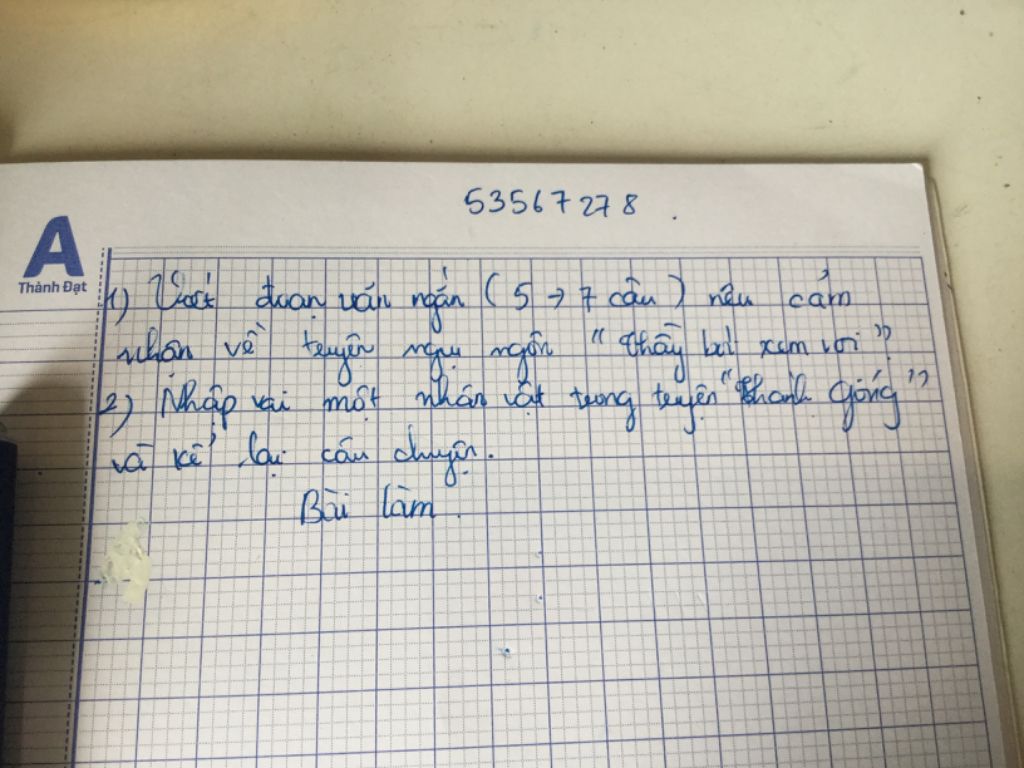 53567278.
A
Thành Đạt
1) Viết đoạn văn ngắn (5 → 7 câu) nêu cảm
nhận về truyện ngụ ngôn "thầy bói xem voi"
2) Nhập vai một nhân vật trong truyện "thánh Gióng"
và kể lại câu chuyện.
Bài làm.